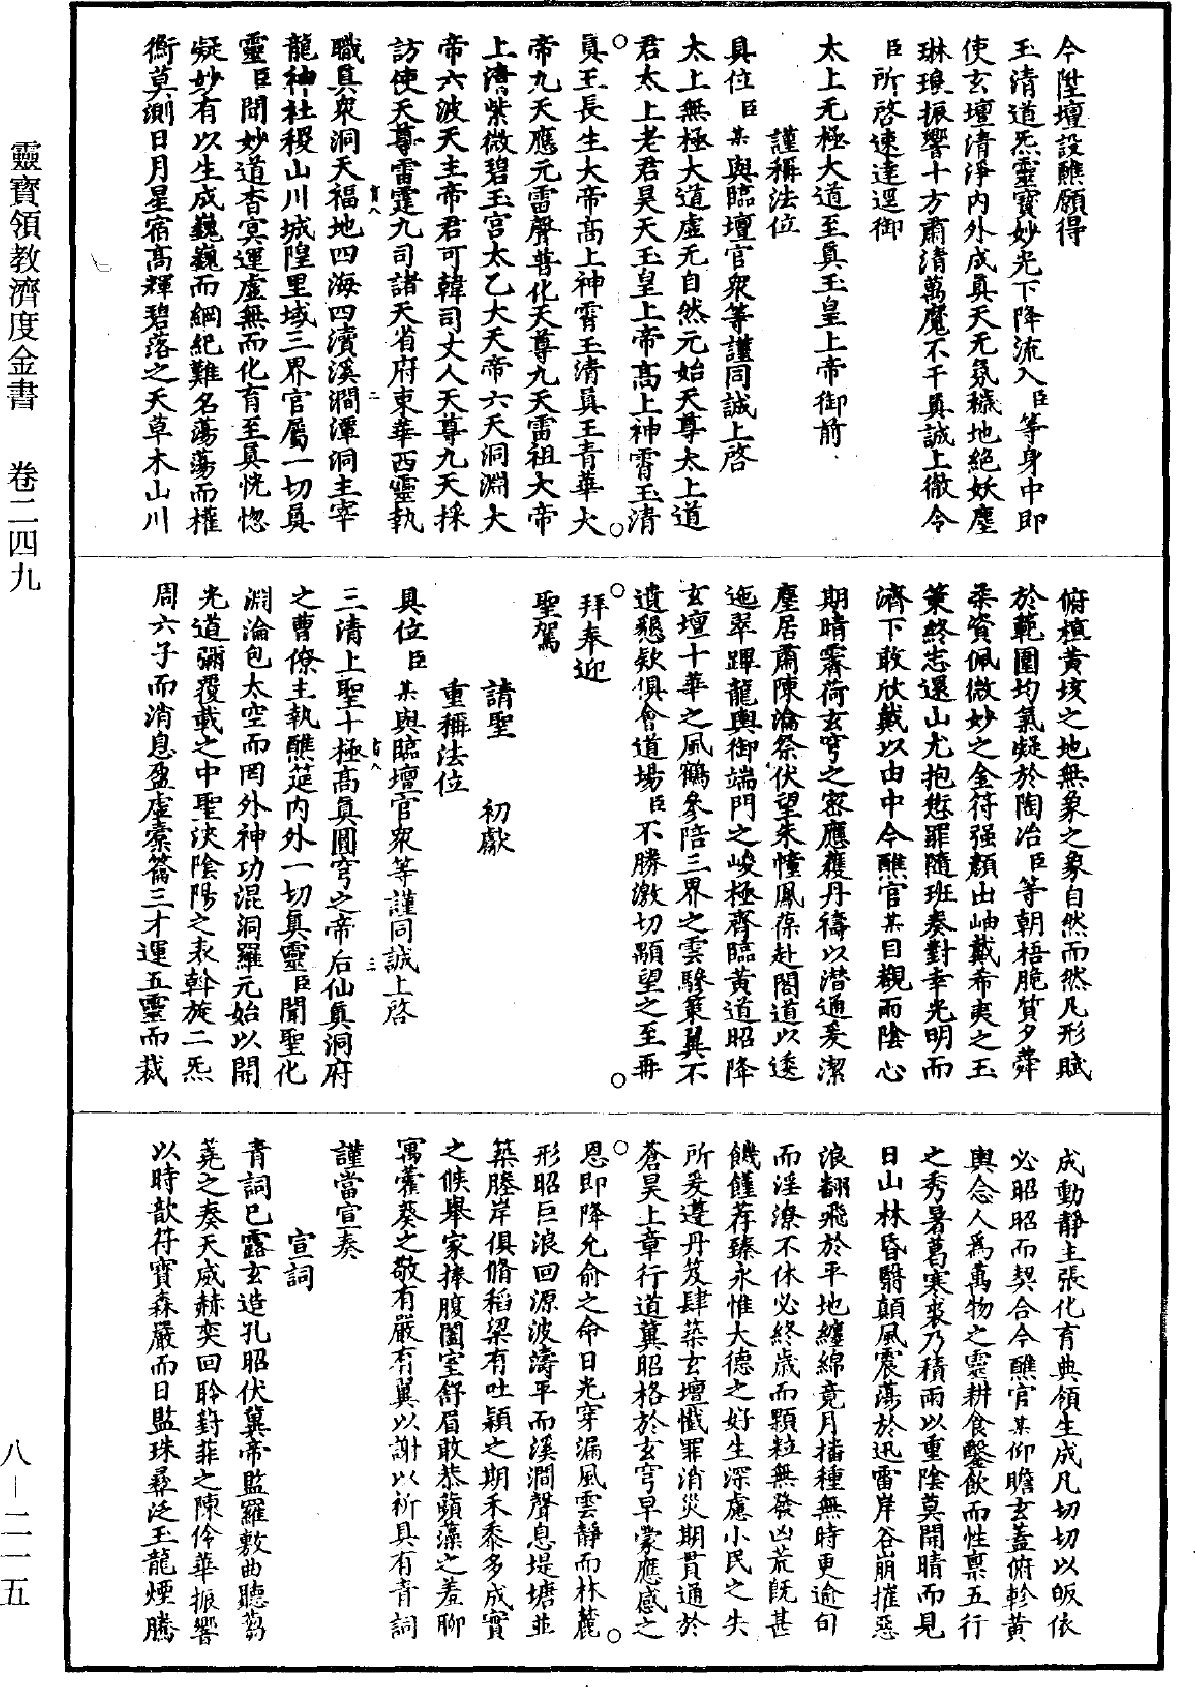 今陞壇設醮願得
玉清道炁靈寶妙光下降流入臣等身中即
使玄壇清淨內外成真天无氛穢地絕妖塵
琳琅振響十方肅清萬魔不干真誠上徹令
臣所啓速達逕御
太上无極大道至真玉皇上帝御前
謹稱法位
具位臣某與臨壇官衆等謹同誠上啓
太上無極大道虛无自然元始天尊太上道
君太上老君昊天玉皇上帝高上神霄玉清
真王長生大帝高上神霄玉清真王青華大
帝九天應元雷聲普化天尊九天雷祖大帝
上清紫微碧玉宮太乙大天帝六天洞淵大
帝六波天主帝君可韓司丈人天尊九天採
訪使天尊雷霆九司諸天省府東華西靈執
職真衆洞天福地四海四瀆溪澗潭洞主宰
龍神社稷山川城隍里域三界官屬一切真
靈臣聞妙道杳冥運虛無而化有至真恍惚
凝妙有以生成巍巍而綱紀難名蕩蕩而權
衡莫測日月星宿高輝碧落之天草木山川
俯植黃垓之地無象之象自然而然凡形賦
於範圍均氣凝於陶冶臣等朝梧脆質夕蕣
柔資佩微妙之金符强顏出岫戴希夷之玉
策終志還山尤抱愆罪隨班奏對幸光明而
濟下敢欣戴以由中今醮官某目觀雨陰心
期晴霽荷玄穹之密應蘞丹禱以潛通爰潔
塵居肅陳瀹祭伏望朱幢鳳葆赴閤道以逶
迤翠蹕龍輿御端門之峻極齊臨黃道昭降
玄壇十華之風鶴參陪三界之雲驂葉翼不
遺懇欵俱會道場臣不勝激切顒望之至再
拜奉迎
聖駕
請聖　初獻
重稱法位
具位臣某與臨壇官衆等謹同誠上啓
三清上聖十極高真圓穹之帝后仙真洞府
之曹僚主執醮筵內外一切真靈臣聞聖化
淵淪包太空而罔外神功混洞羅元始以開
光道彌覆載之中聖浹陰陽之表斡旋二炁
周六子而消息盈虛橐籥三才運五靈而裁
成動靜主張化育典領生成凡切切以皈依
必昭昭而契合今醮官某仰瞻玄蓋俯軫黃
輿念人爲萬物之靈耕食鑿飲而性稟五行
之秀暑葛寒裘乃積雨以重陰莫開晴而見
日山林昏翳顛風震蕩於迅雷岸谷崩摧惡
浪翻飛於平地纏綿竟月播種無時更逾旬
而淫潦不休必終歲而顆粒無發凶荒旣甚
饑饉荐臻永惟大德之好生深慮小民之失
所爰遵丹笈肆築玄壇懺罪消災期貫通於
蒼昊上章行道冀昭格於玄穹早蒙應感之
恩即降允俞之命日光穿漏風雲靜而林麓
形昭巨浪回源波濤平而溪澗聲息堤塘並
築塍岸俱脩稻梁有吐穎之期禾黍多成實
之候舉家捧腹闔室舒眉敢恭蘋藻之羞聊
寓藿葵之敬有嚴有翼以謝以祈具有青詞
謹當宣奏
宣詞
青詞已露玄造孔昭伏冀帝監羅敷曲聽芻
蕘之奏天威赫奕回聆葑菲之陳伶華振響
以時歆符寶森嚴而日監珠彝泛玉龍煙騰
靈寶領教濟度金書　卷二四九
八—二一五